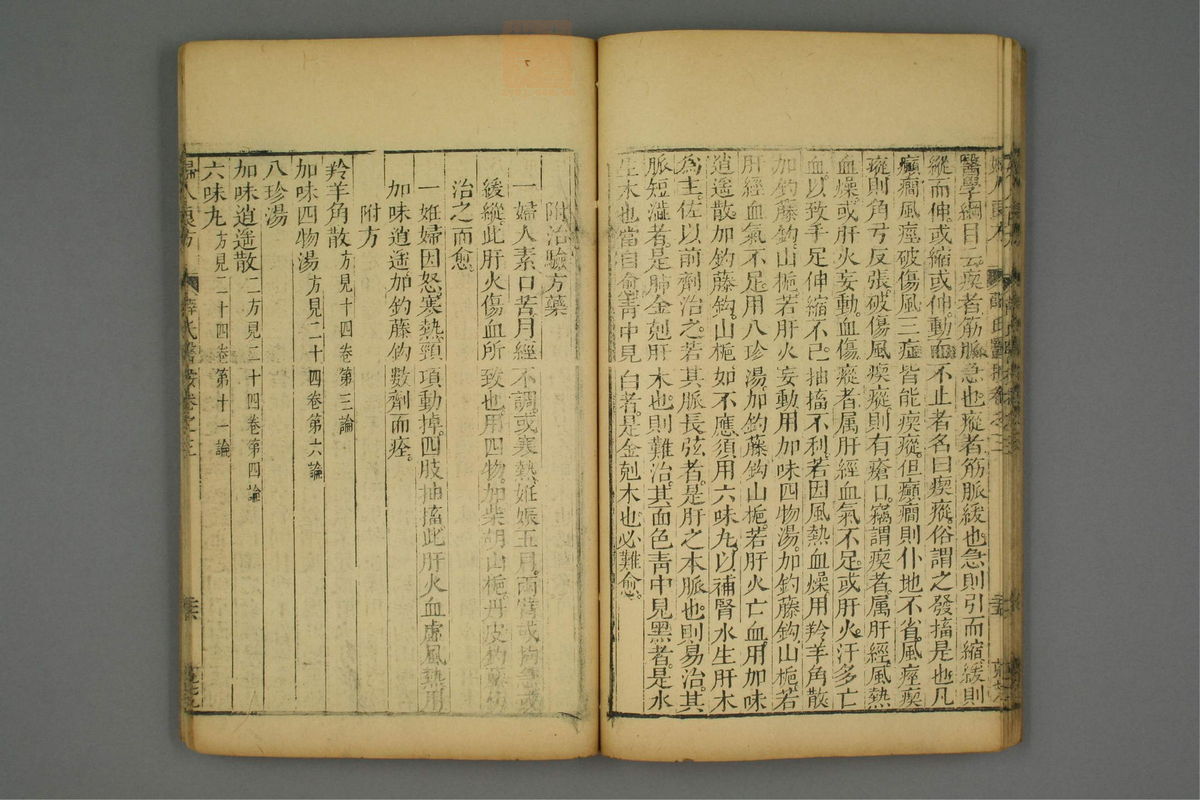 醫學綱目云瘈者筋脈急也瘲者筋脈緩也急則引而縮緩則
縱而伸或縮或伸動而不止者名曰瘈瘲俗謂之發搐是也凡
癲癇風痙破傷風三症皆能瘈瘲但癲癇則仆地不省風痙瘈
瘲則角弓反張破傷風瘈瘲則有瘡口竊謂瘈者属肝經風熱
血燥或肝火妄動血傷瘲者属肝經血氣不足或肝火汗多亡
血以致手足伸縮不已抽搐不利若因風熱血燥用羚羊角散
加鈎藤鈎山梔若肝火妄動用加味四物湯加鈎藤鈎山梔若
肝經血氣不足用八珍湯加鈎藤鈎山梔若肝火亡血用加味
逍遥散加鈎藤鈎山梔如不應須用六味丸以補腎水生肝木
為主佐以前劑治之若其脈長弦者是肝之本脈也則易治其
脈短澁者是肺金剋肝木也則難治其面色青中見黑者是水
生木也當自愈青中見白者是金剋木也必難愈
附治驗方藥
一婦人素口苦月經不調或寒熱妊娠五月兩
緩縱此肝火傷血所致也用四物加柴胡山梔丹皮鈎藤鈎
治之而愈
一妊婦因怒寒熱頸項動掉四肢抽搐此肝火血虗風熱用
加味逍遥加鈎藤鈎數劑而痊
附方
羚羊角散方見十四卷第三論
加味四物湯方見二十四卷第六論
八珍湯
加味逍遥散二方見二十四卷第四論
六味丸方見二十四卷第十一論
婦人良方 薛氏醫按卷之三